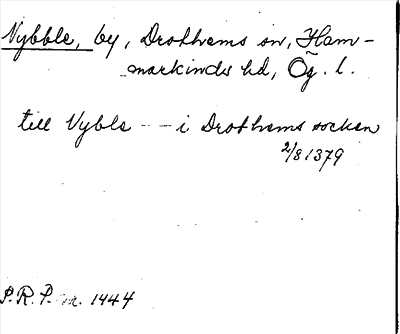 Nybble, by, Drothems sn, Ham-
markinds hd, Ög. l.
till Nyble - - i Drothems socken
2/8 1379
P.R.P. nr. 1444